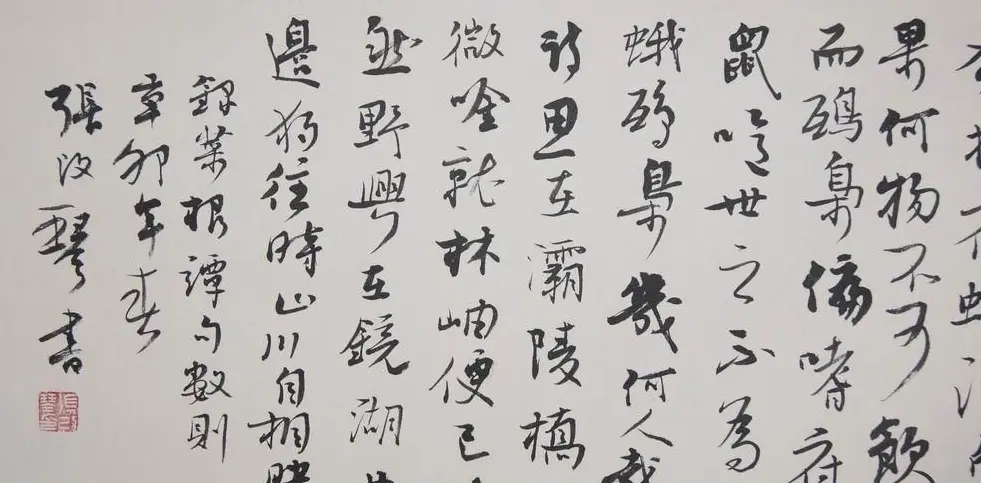 果何物不可飲
而鴟梟偏嗜腐
鼠噫世之不為
蛾鴟梟幾何人哉
詩思在灞陵橋
微唫就林岫便已
然野興在鏡湖
邊獨往時山川自相映
錄菜根譚句數則
辛卯年春
張改琴書